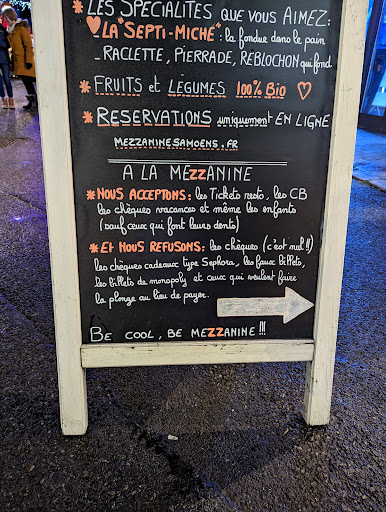 * LES SPÉCIALITÉS QUE VOUS AIMEZ:
LA "SEPTI-MICHE": la fondue dans le pain
_ RACLETTE, PIERRADE, REBLOCHON qui fond
* FRUITS et LÉGUMES 100% Bio
* RESERVATIONS uniquement EN LIGNE
MEZZANINESAMOENS.FR
A LA MEZZANINE
* NOUS ACCEPTONS: les Tickets resto, les CB
les chèques vacances et même les enfants
(sauf ceux qui font leurs dents)
* ET NOUS REFUSONS: les chèques (c'est nul!!)
les chèques cadeaux type Sephora, les faux billets,
les billets de monopoly et ceux qui veulent faire
la plonge au lieu de payer.
BE COOL, BE MEZZANINE!!!